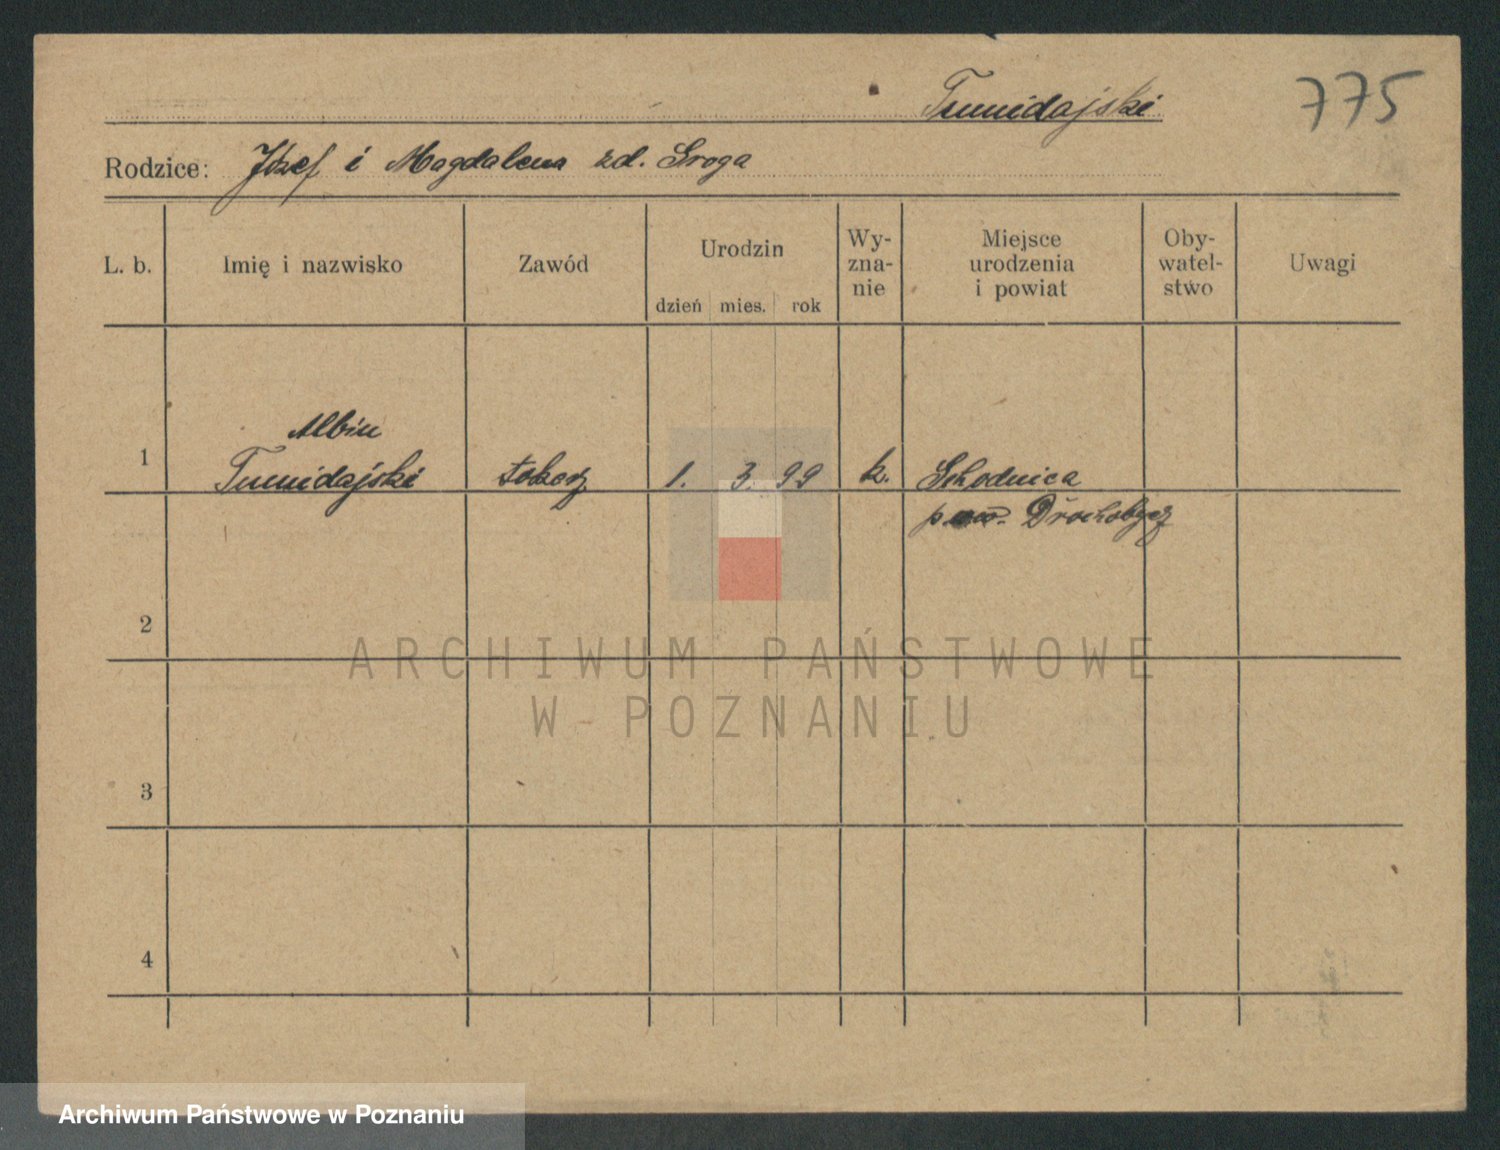 Tumidajski
775
Rodzice: Józef i Magdalena zd. Sroga
L. b.
Imię i nazwisko
Zawód
Urodzin
dzień mies. rok
Wy-
zna-
nie
Miejsce
urodzenia
i powiat
Oby-
watel-
stwo
Uwagi
1
Albin
Tumidajski
1. 3. 99
k.
Schodnica
pow. Drochobycz
2
3
4
ARCHIWUM PAŃSTWOWE
W POZNANIU
Archiwum Państwowe w Poznaniu